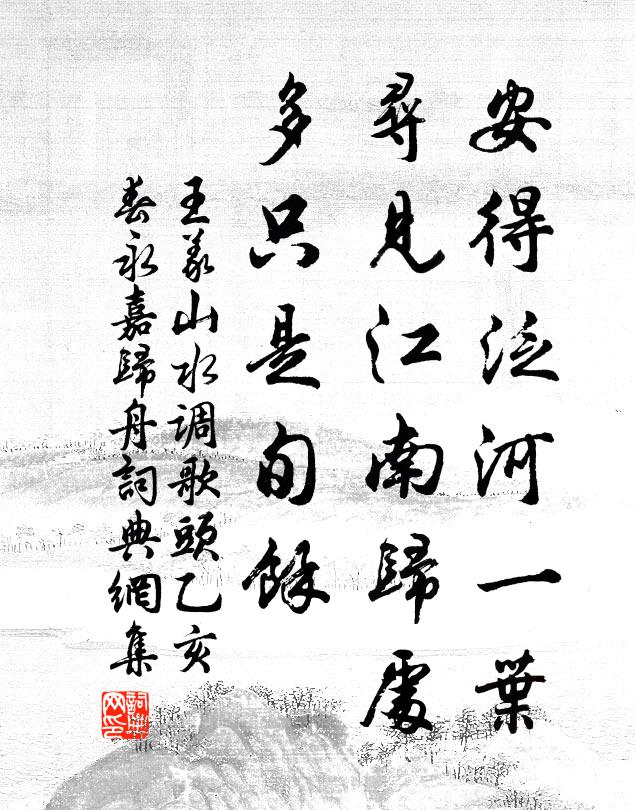 安得泛河一葉
尋見江南歸處
多只是旬餘
王義山水调歌頭乙亥
春永嘉歸舟詞典網集